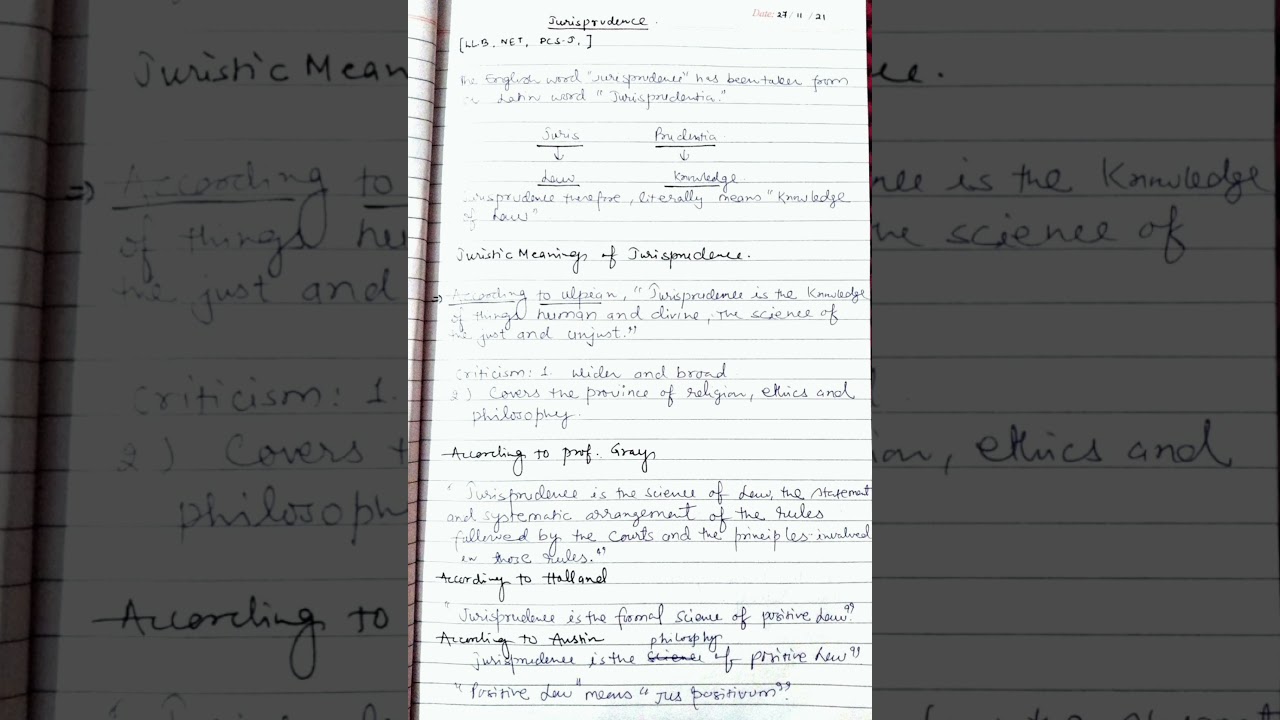 Jurisprudence.
Date: 27/11/21
[LLB, NET, PCS-J,]
The English word "Jurisprudence" has been taken from
Latin word "Jurisprudentia."
Juris Prudentia
↓ ↓
Law Knowledge
Jurisprudence therefore, literally means "Knowledge
of Law"
Juristic Meanings of Jurisprudence.
⇒ According to ulpian, "Jurisprudence is the Knowledge
of things human and divine, the science of
the just and unjust."
Criticism: 1. Wider and broad
2) Covers the province of religion, ethics and
philosophy.
According to prof. Gray
"Jurisprudence is the science of Law, the statement
and systematic arrangement of the rules
followed by the courts and the principles involved
in those rules."
According to Holland
"Jurisprudence is the formal science of positive Law"
According to Austin
philosphy
Jurisprudence is the science of positive Law"
"Positive Law" means "Jus positivum"